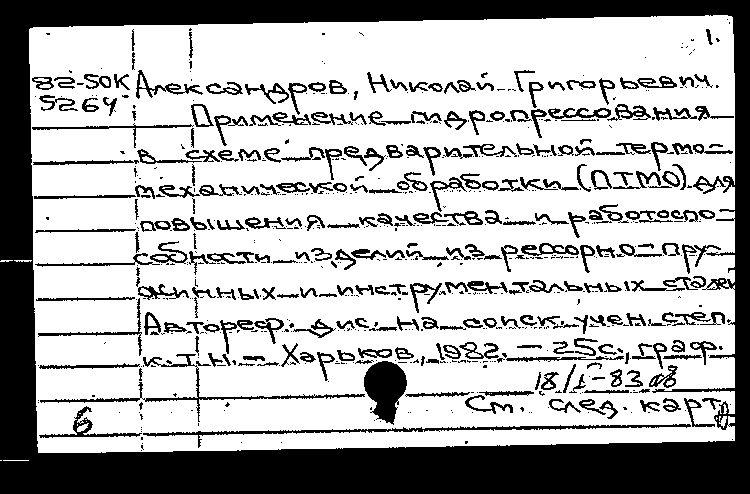 1.
82-50К Александров, Николай Григорьевич.
5264 Применение гидропрессования
в схеме предварительной термо-
механической обработки (ПТМО) для
повышения качества и работоспо-
собности изделий из рессорно-пру-
жинных и инструментальных сталей
Автореф. дис. на соиск. учен. степ.
к.т.н. – Харьков, 1982. – 25с., граф.
18/I-83
6 См. след. карт.